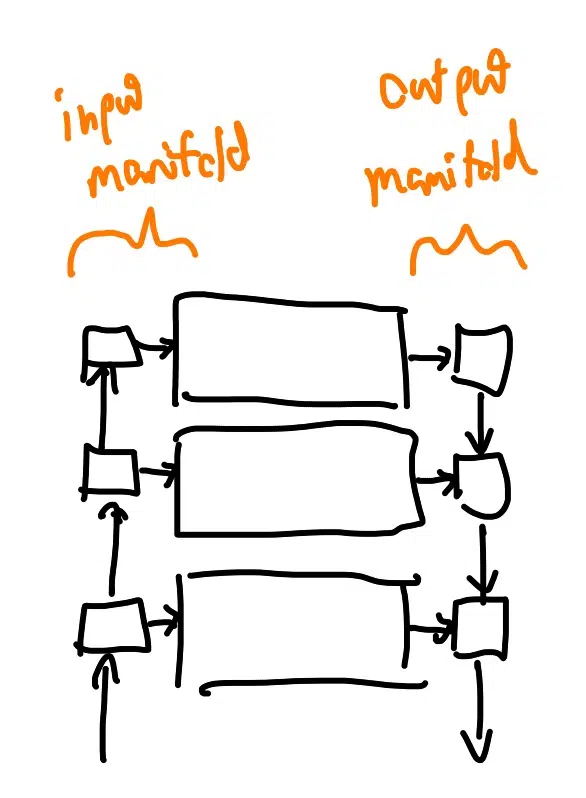 input
manifold
output
manifold